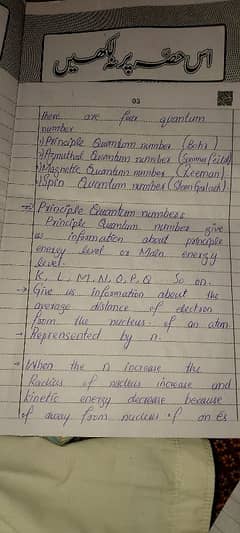 اس حصہ پر نہ لکھیں
03
There are four quantum
number
Principle Quantum number (Bohr)
Azmuthal Quantum number (Sommerfeild)
Magnetic Quantum number (Zeeman)
Spin Quantum number
Principle Quantum numbers
Principle Quantum number give
us information about principle
energy level or Main energy
level.
K, L, M, N, O, P, Q So on.
→ Give us information about the
average distance of electron
from the nucleus of an atom.
→ Reprensented by n.
→ When the n increase the
Radius of nucleus increase and
kinetic energy decrease because
of away from nucleus of an es